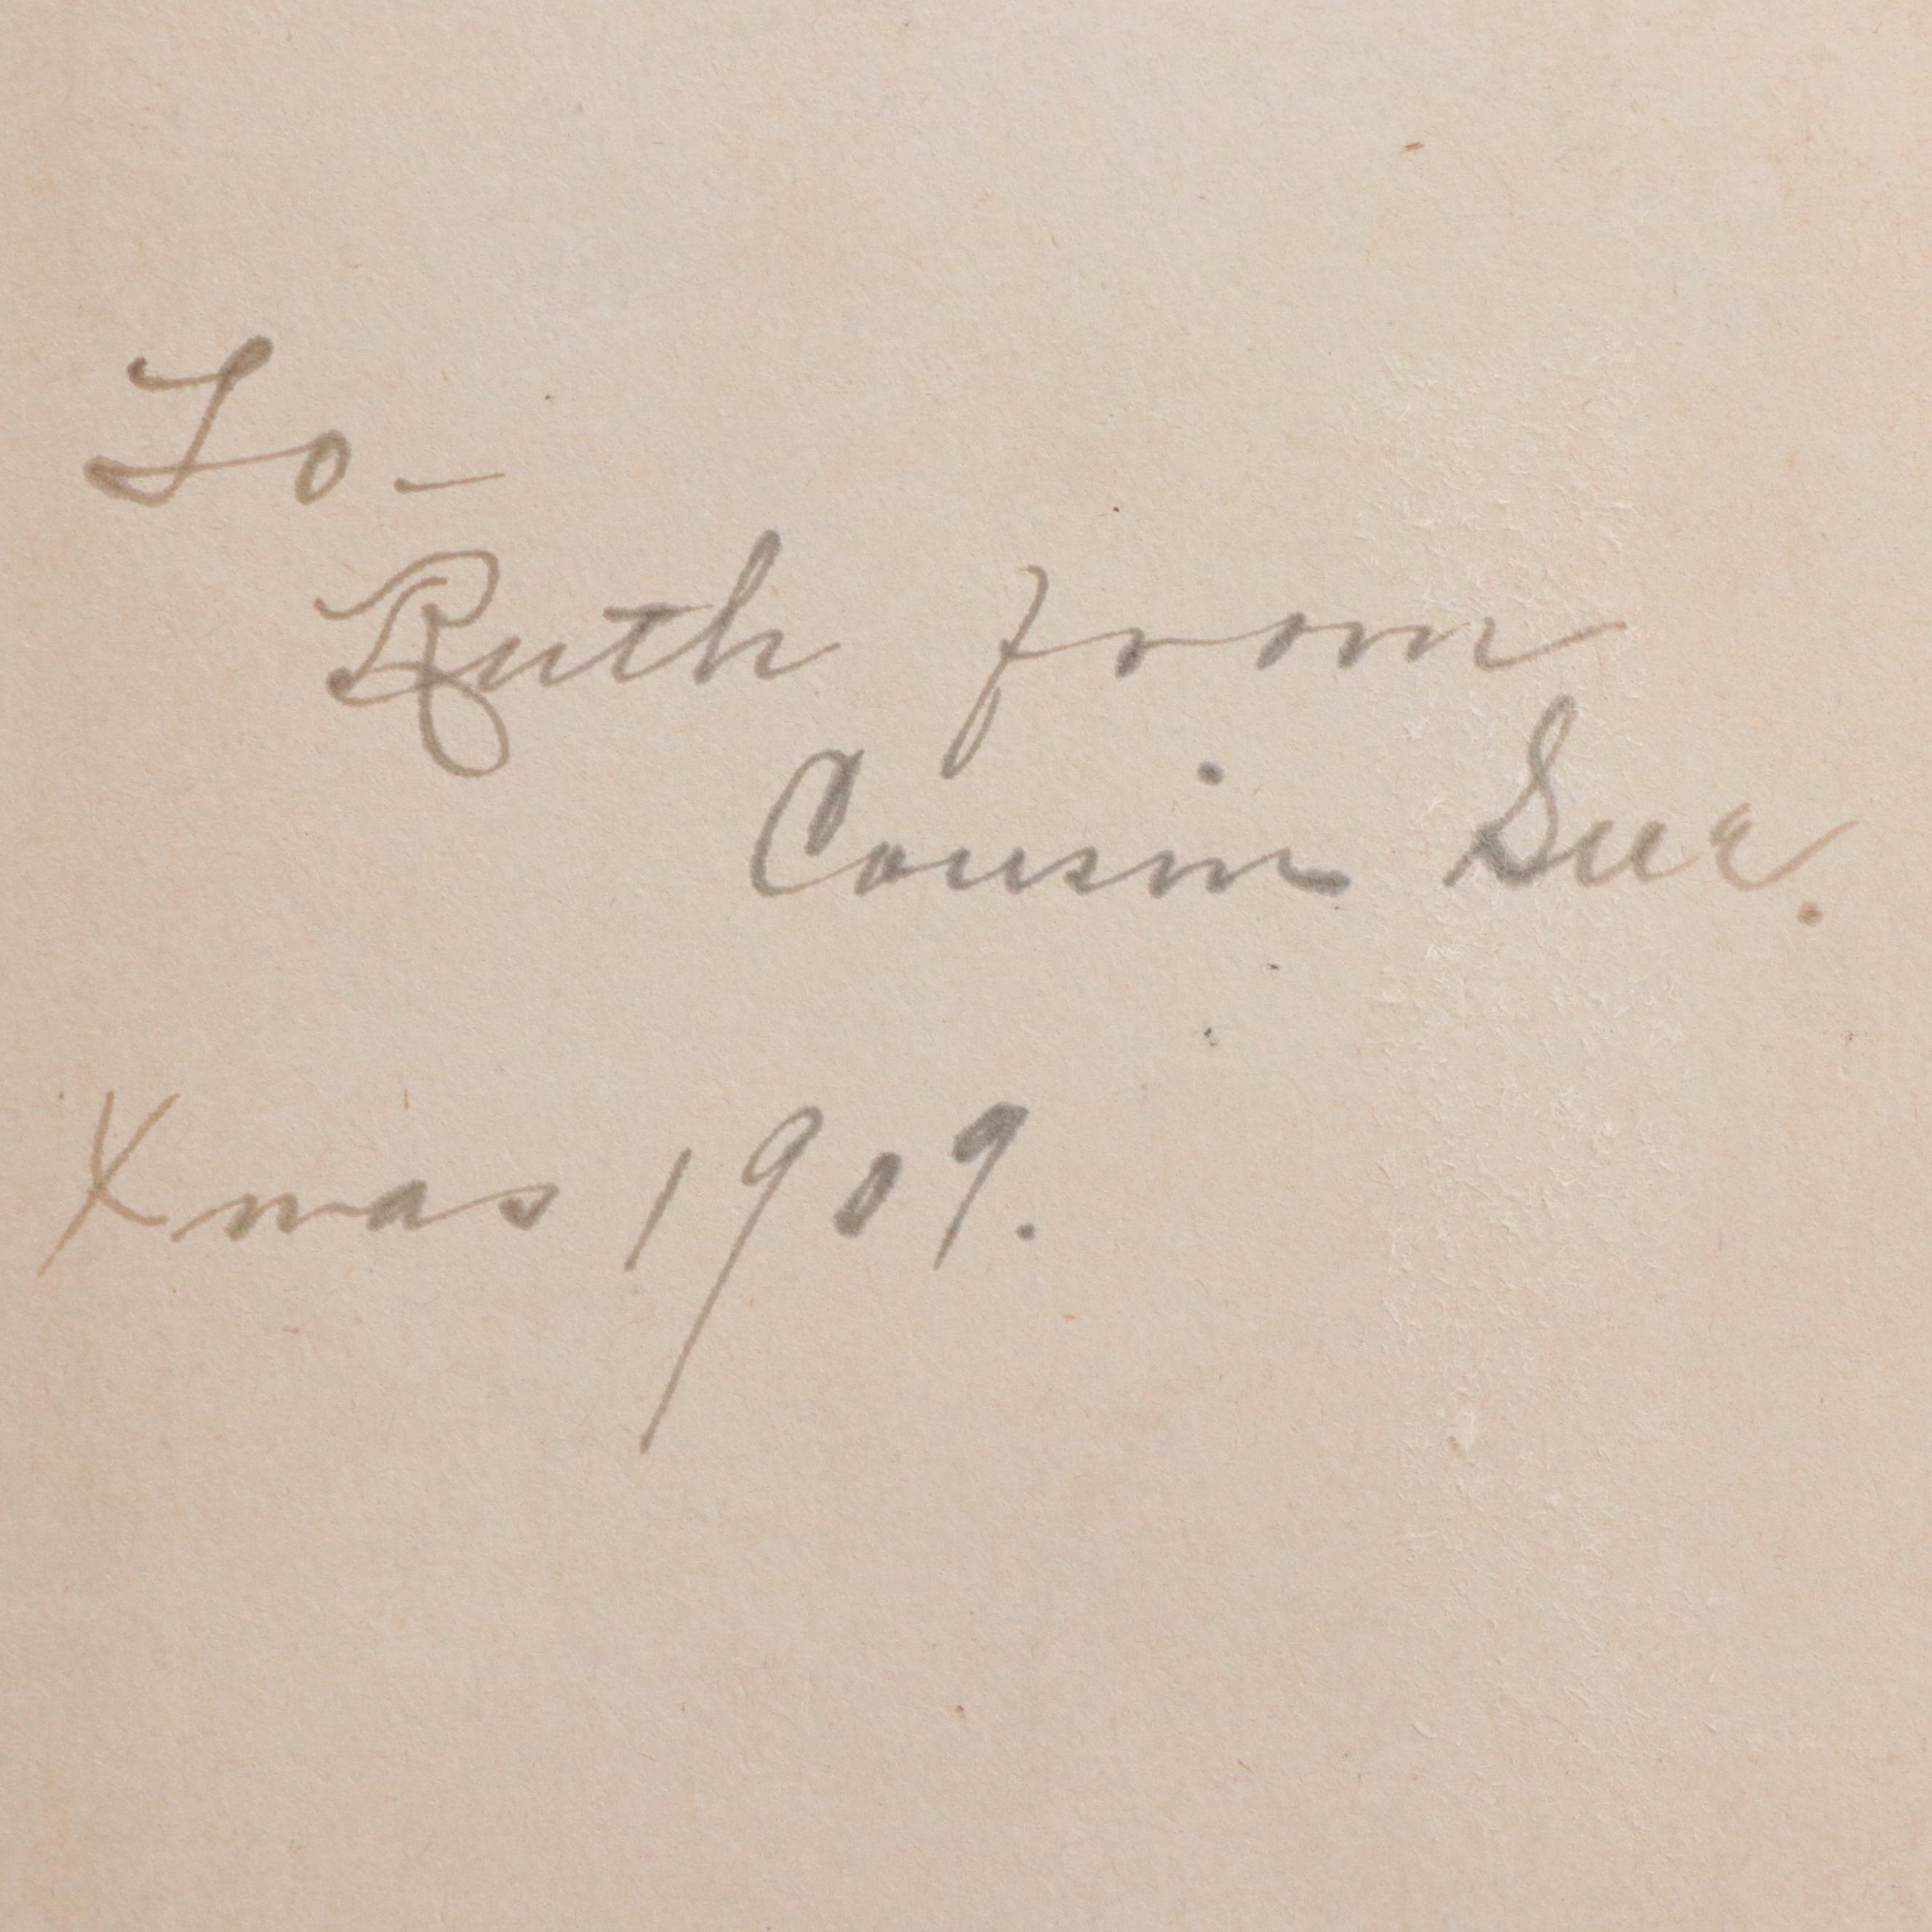 To-
Ruth from
Cousin Sue.
Xmas 1909.